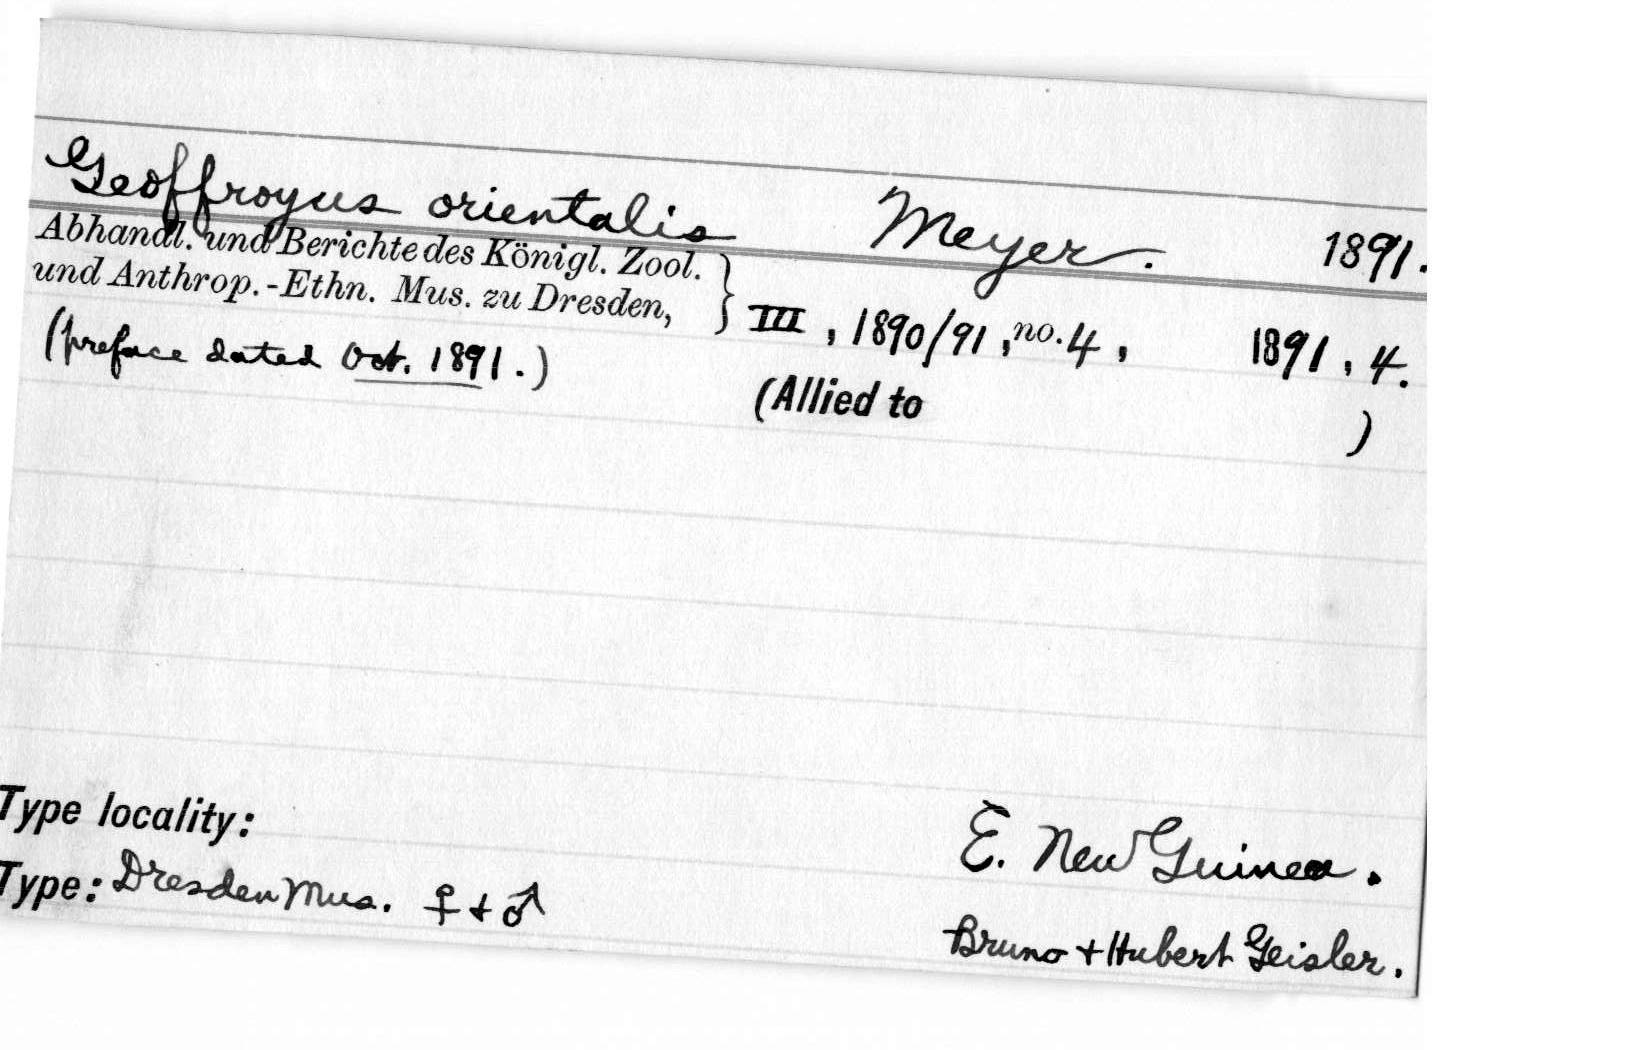 Geoffroyus orientalis Meyer. 1891.
Abhandl. und Berichte des Königl. Zool.
und Anthrop.-Ethn. Mus. zu Dresden, } III, 1890/91, no. 4, 1891, 4.
(preface dated Oct. 1891.)
(Allied to )
Type locality: E. New Guinea.
Type: Dresden Mus. ♀ + ♂ Bruno + Hubert Geisler.